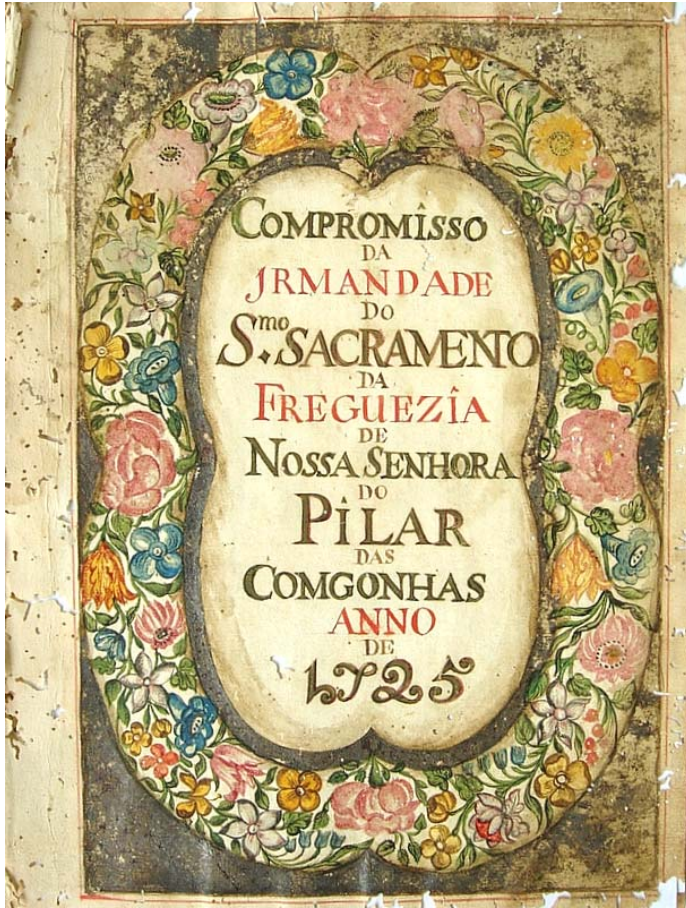 COMPROMÎSSO
DA
JRMANDADE
DO
S.mo SACRAMENTO
DA
FREGUEZÎA
DE
NOSSA SENHORA
DO
PÎLAR
DAS
COMGONHAS
ANNO
DE
1725